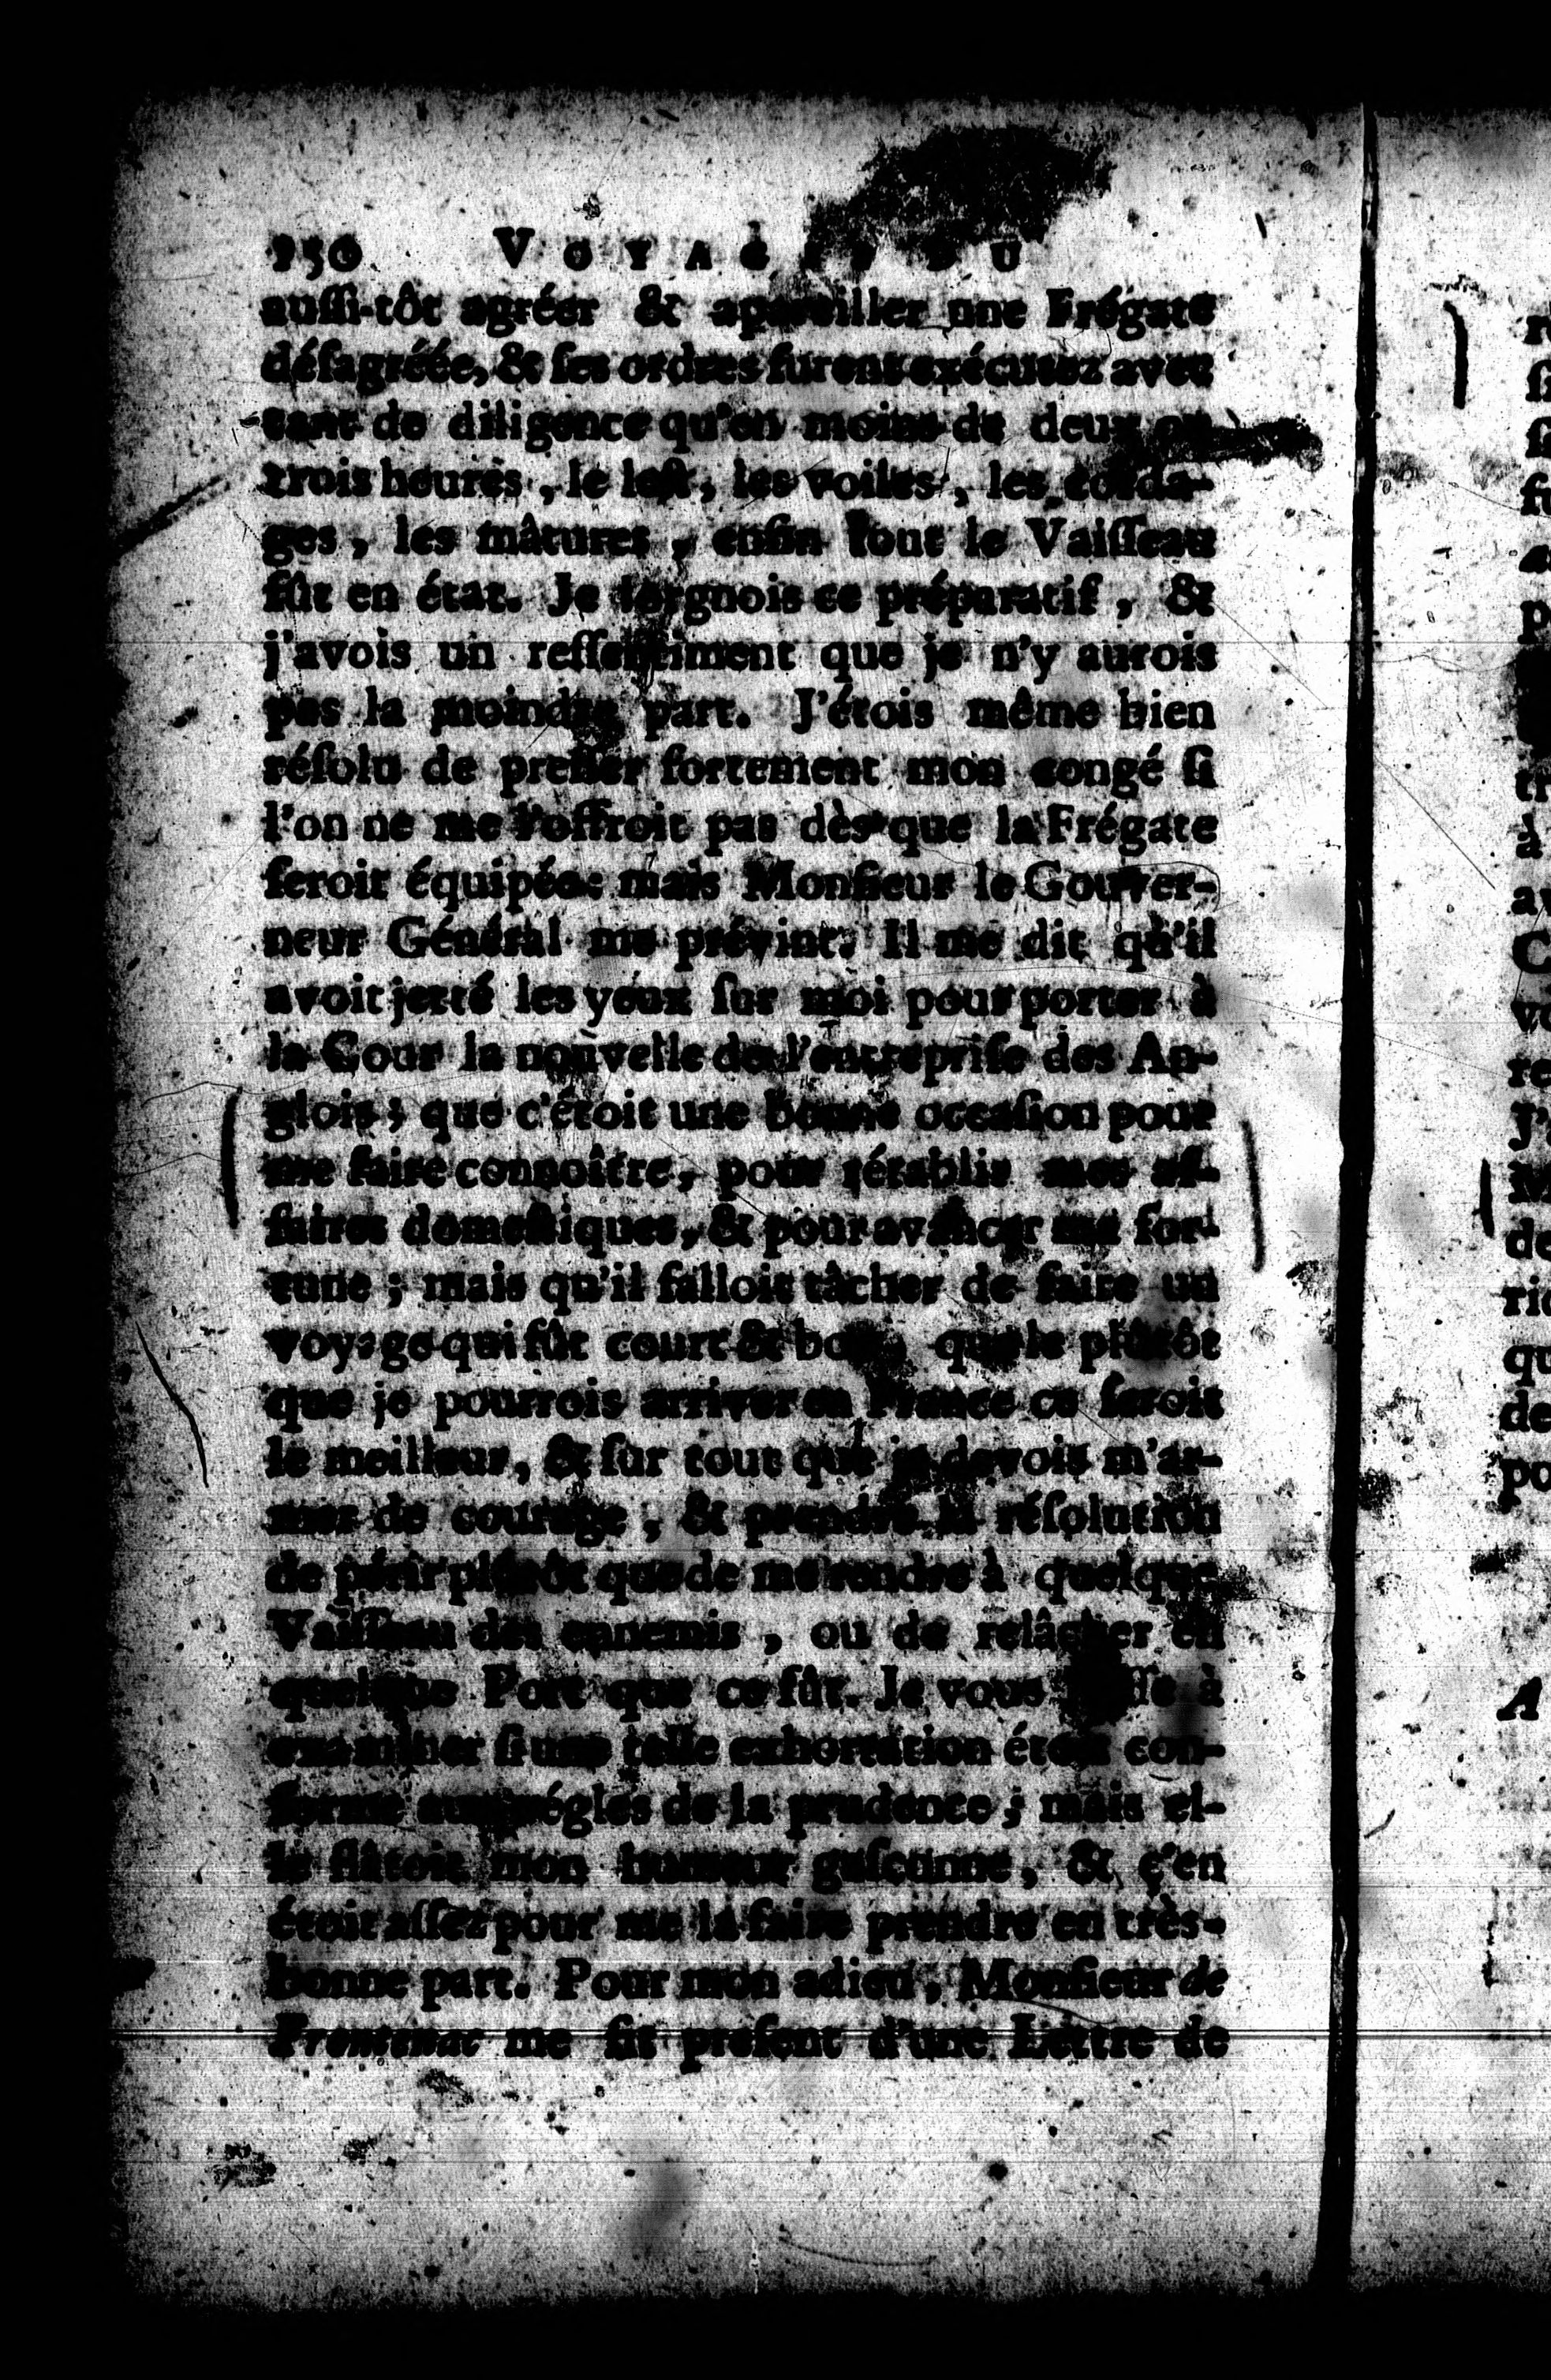 250 VOYAGE DU
auſſi-tôt agréer & apareiller une Frégate
déſagréée, & ſes ordres furent exécutez avec
tant de diligence qu'en moins de deux ou
trois heures, le leſt, les voiles, les corda-
ges, les mâtures, enfin tout le Vaiſſeau
fût en état. Je lorgnois ce préparatif, &
j'avois un reſſentiment que je n'y aurois
pas la moindre part. J'étois même bien
réſolu de preſſer fortement mon congé ſi
l'on ne me l'offroit pas dès que la Frégate
ſeroit équipée: mais Monſieur le Gouver-
neur Général me prévint. Il me dit qu'il
avoit jetté les yeux ſur moi pour porter à
la Cour la nouvelle de l'entrepriſe des An-
glois; que c'étoit une bonne occaſion pour
me faire connoître, pour rétablir mes af-
faires domeſtiques, & pour avancer ma for-
tune; mais qu'il falloit tâcher de faire un
voyage qui fût court & bon, que le plûtôt
que je pourrois arriver en France ce ſeroit
le meilleur, & ſur tout que je devois m'ar-
mer de courage, & prendre la réſolution
de périr plûtôt que de me rendre à quelque
Vaiſſeau des ennemis, ou de relâcher en
quelque Port que ce fût. Je vous laiſſe à
examiner ſi une telle exhortation étoit con-
forme aux régles de la prudence; mais el-
le flâtoit mon humeur gaſconne, & c'en
étoit aſſez pour me la faire prendre en très-
bonne part. Pour mon adieu, Monſieur de
Frontenac me fit préſent d'une Lettre de